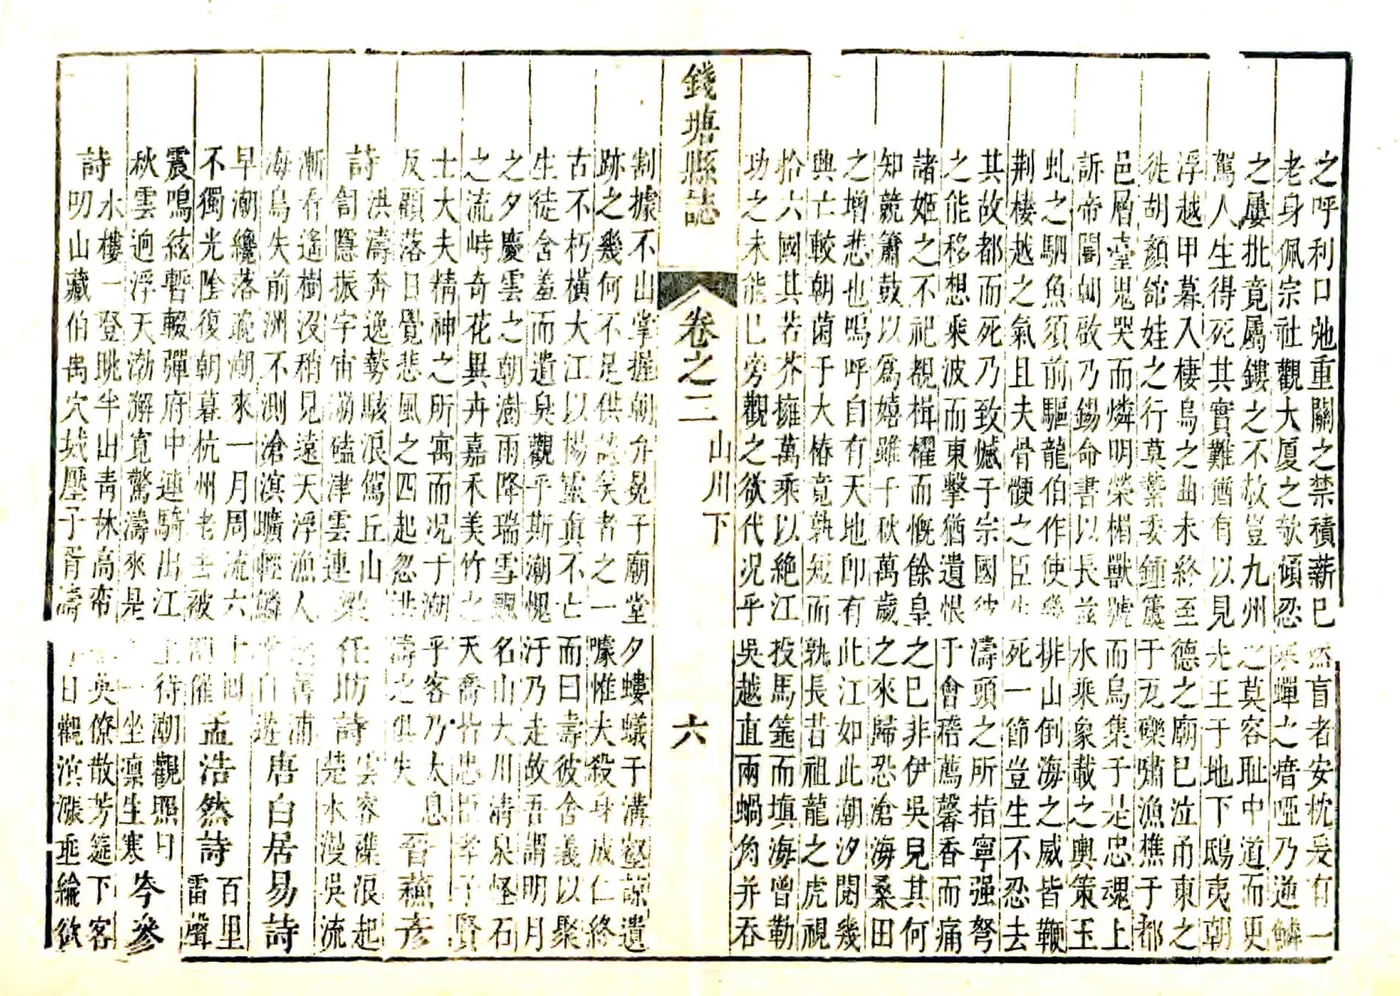 之呼利口弛重關之禁積薪已然盲者安枕爰有一
老身佩宗社觀大厦之欹傾忍寒蟬之瘖啞乃逆鱗
之屢批竟屬鏤之不赦豈九州之莫容恥中道而更
駕人生得死其實難酋有以見先王于地下鴟夷朝
浮越甲暮入棲烏之曲未終至德之廟已泣甬東之
徙胡顔舘娃之行莫縶委鍾簴于瓦礫嘯漁樵于都
邑層臺鬼哭而燐明榮楣獸號而烏集于是忠魂上
訴帝閽訕敬乃錫命書以長茲水乘象載之輿策玉
虬之駟魚須前驅龍伯作使排山倒海之威皆鞭
荆棲越之氣且夫骨骾之臣生死一節豈生不忍去
其故都而死乃致憾于宗國彼濤頭之所指寧强弩
之能移想乘波而東擊猶遺恨于會稽薦馨香而痛
諸姬之不祀覩楫櫂而慨餘皇之已非伊吳兒其何
知競簫鼓以爲嬉雖千秋萬歲之來歸恐滄海桑田
之增悲也嗚呼自有天地卽有此江如此潮汐閱幾
興亡較朝菌于大椿竟孰短而孰長昔祖龍之虎視
拾六國其若芥擁萬乘以絶江投馬箠而填海曾勒
功之未能已旁觀之欲代况乎吳越直兩蝸角并吞
錢塘縣誌
卷之二
山川下
六
割據不山掌握朝弁冕于廟堂夕螻蟻于溝壑諒遺
跡之幾何不足供矣者之一噱惟夫殺身成仁終
古不朽橫大江以揚靈眞不亡而曰壽彼舍義以聚
生徒含羞而遺臭觀乎斯潮愧汙乃走故吾謂明月
之夕慶雲之朝澍雨降瑞雪飄名山大川淸泉怪石
之流峙奇花異卉嘉禾美竹之天喬皆忠臣孝子賢
士大夫精神之所寓而况于潮乎客乃太息
反顧落日覺悲風之四起忽洪濤之俱失
晉蘇彦
詩
洪濤奔逸勢駭浪駕丘山
訇隱振宇宙漰磕津雲連
任昉詩
雲容雜浪起
楚水漫吳流
漸看遙樹没稍見遠天浮漁人
海鳥失前洲不測滄溟曠輕鱗自遊
唐白居易詩
早潮纔落晚潮來一月周流六十回
不獨光陰復朝暮杭州老去被潮催
孟浩然詩
百里
雷聲
震鳴絃暫輟彈府中連騎出江上待潮觀照日
秋雲逈浮天渤澥寬驚濤來是一坐凜生寒
岑參
詩
水樓一登眺半山靑林高帟英僚散芳筵下客
叨山藏伯禹穴城壓子胥濤日觀濱漲垂綸欲